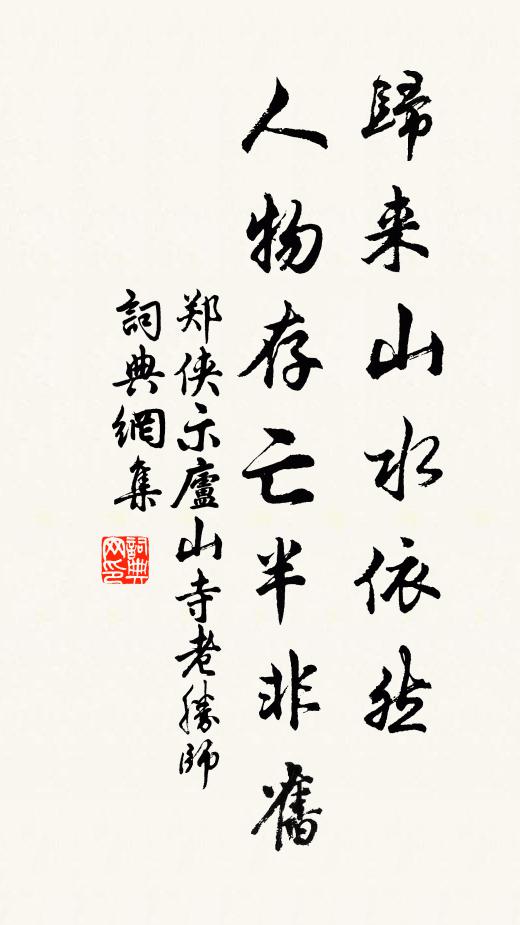 歸来山水依然
人物存亡半非舊
郑侠示廬山寺老勝師
詞典網集
詞典网印